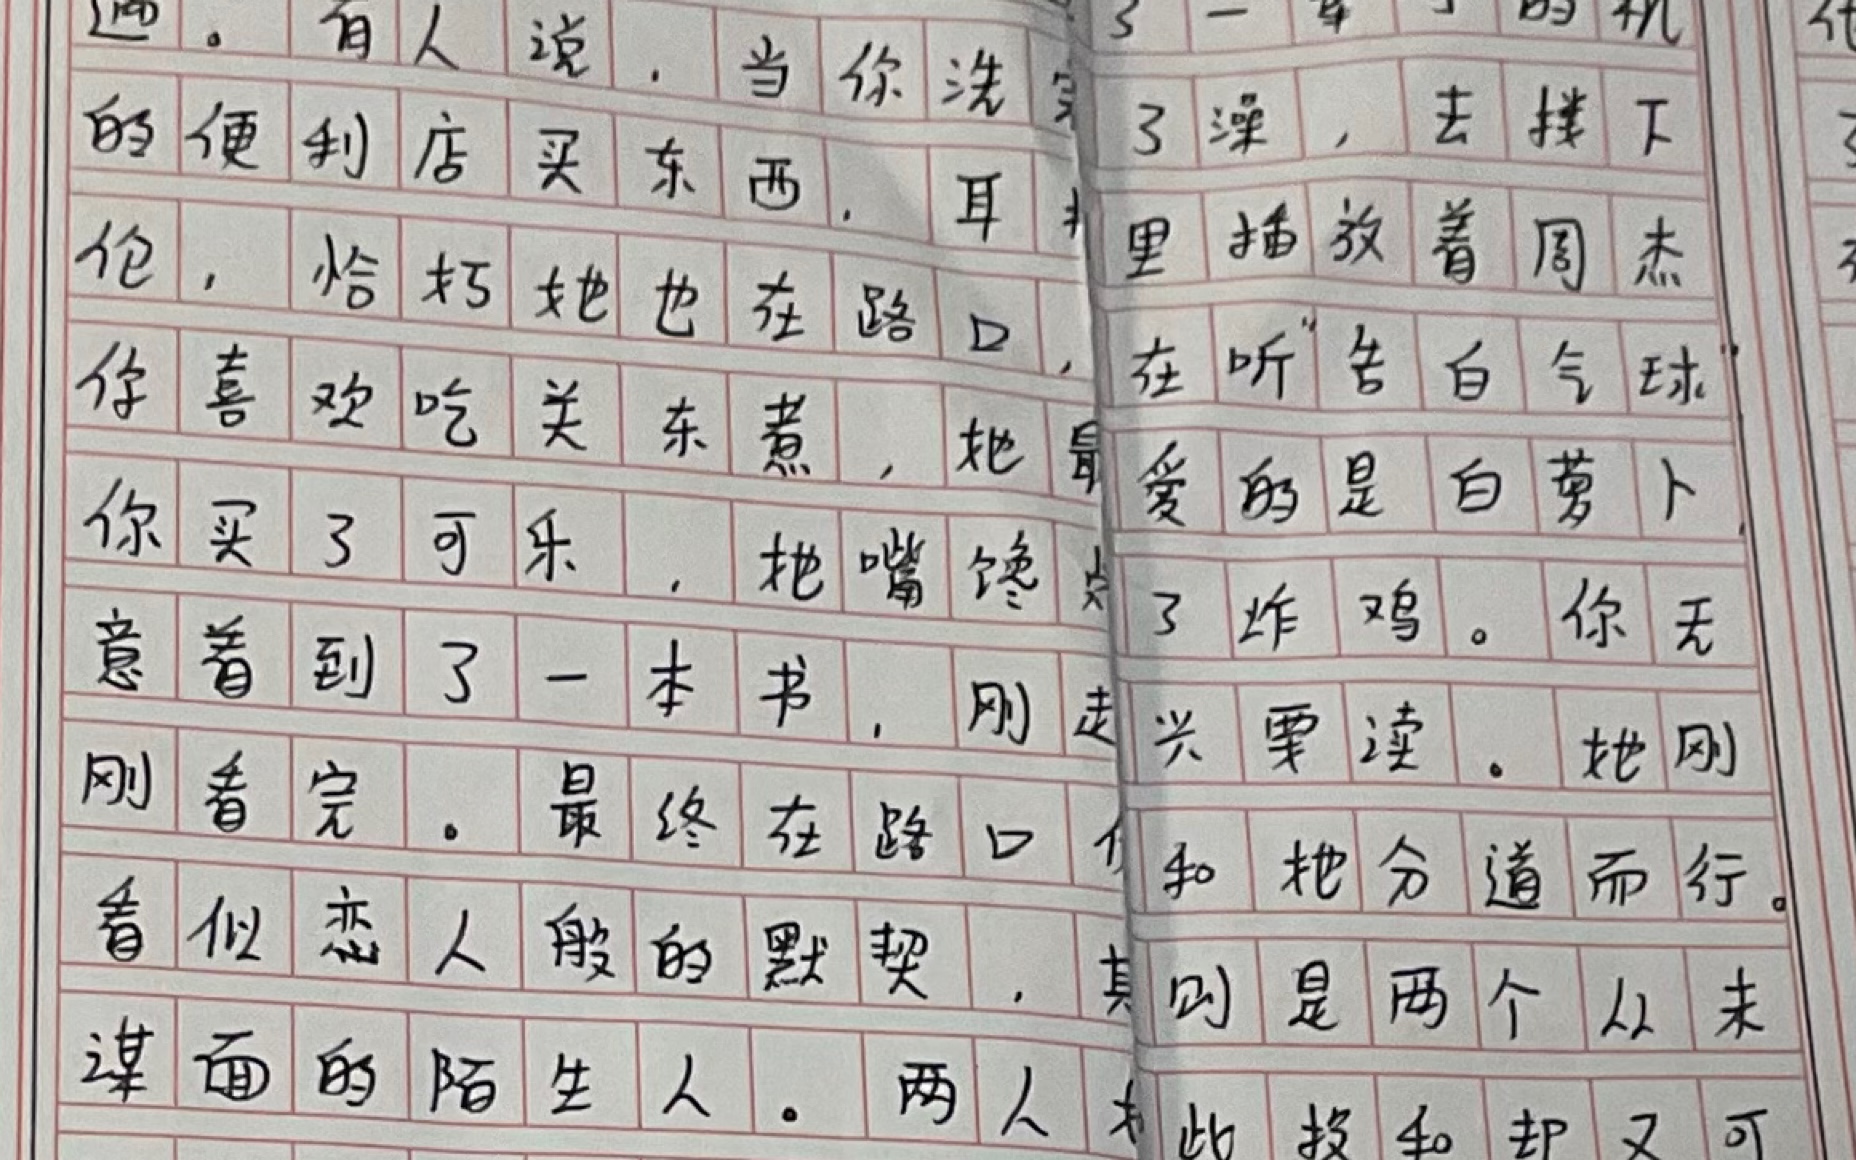 了一 的机
遇。有人说，当你洗完了澡，去楼下
的便利店买东西，耳 里播放着周杰
伦，恰巧她也在路口，在听“告白气球”
你喜欢吃关东煮，她最爱的是白萝卜，
你买了可乐，她嘴馋点了炸鸡。你无
意看到了一本书，刚走兴要读。她刚
刚看完。最终在路口你和她分道而行。
看似恋人般的默契，其则是两个从未
谋面的陌生人。两人 此投和却又可